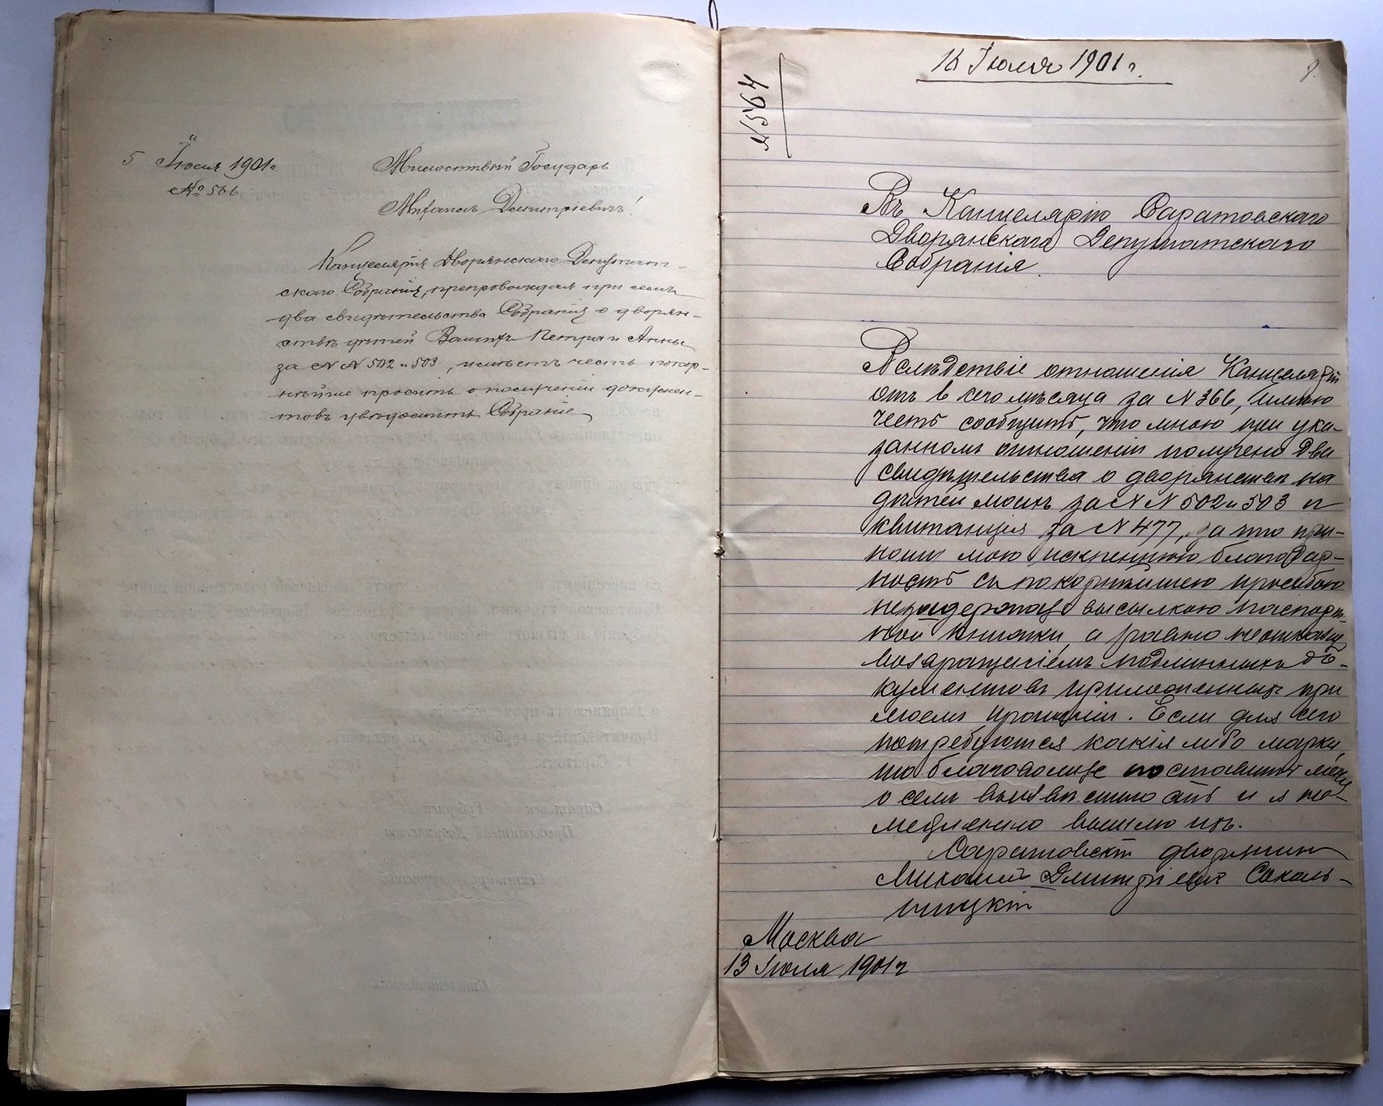 5 Июля 1901 г
№ 566
Милостивый Государь
Михаилъ Дмитріевичъ!
Канцелярія Дворянскаго Депутат-
скаго Собранія, препровождая при семъ
два свидѣтельства Собранія о дворян-
ствѣ дѣтей Вашихъ Петра и Анны
за №№ 502 и 503, имѣетъ честь покор-
нѣйше просить о полученіи докумен-
товъ увѣдомить Собраніе
16 Іюля 1901 г.
№ 564
Въ Канцелярію Саратовскаго
Дворянскаго Депутатскаго
Собранія.
Вслѣдствіе отношенія Канцеляріи
отъ 5 сего мѣсяца за № 366, имѣю
честь сообщить, что мною при ука-
занномъ отношеніи получено два
свидѣтельства о дворянствѣ на
дѣтей моихъ за №№ 502 и 503 и
квитанція за № 477, за что при-
ношу мою искреннюю благодар-
ность съ покорнѣйшею просьбою
не задержать высылкою паспорт-
ной книжки, а равно
возвращеніемъ подлинныхъ до-
кументовъ приложенныхъ при
моемъ прошеніи. Если для сего
потребуются какія либо марки,
то благоволите поставить меня
о семъ въ извѣстность и я не-
медленно вышлю ихъ.
Саратовскій дворянинъ
Михаилъ Дмитріевичъ Соколь-
ницкій
Москва
13 Іюля 1901 г